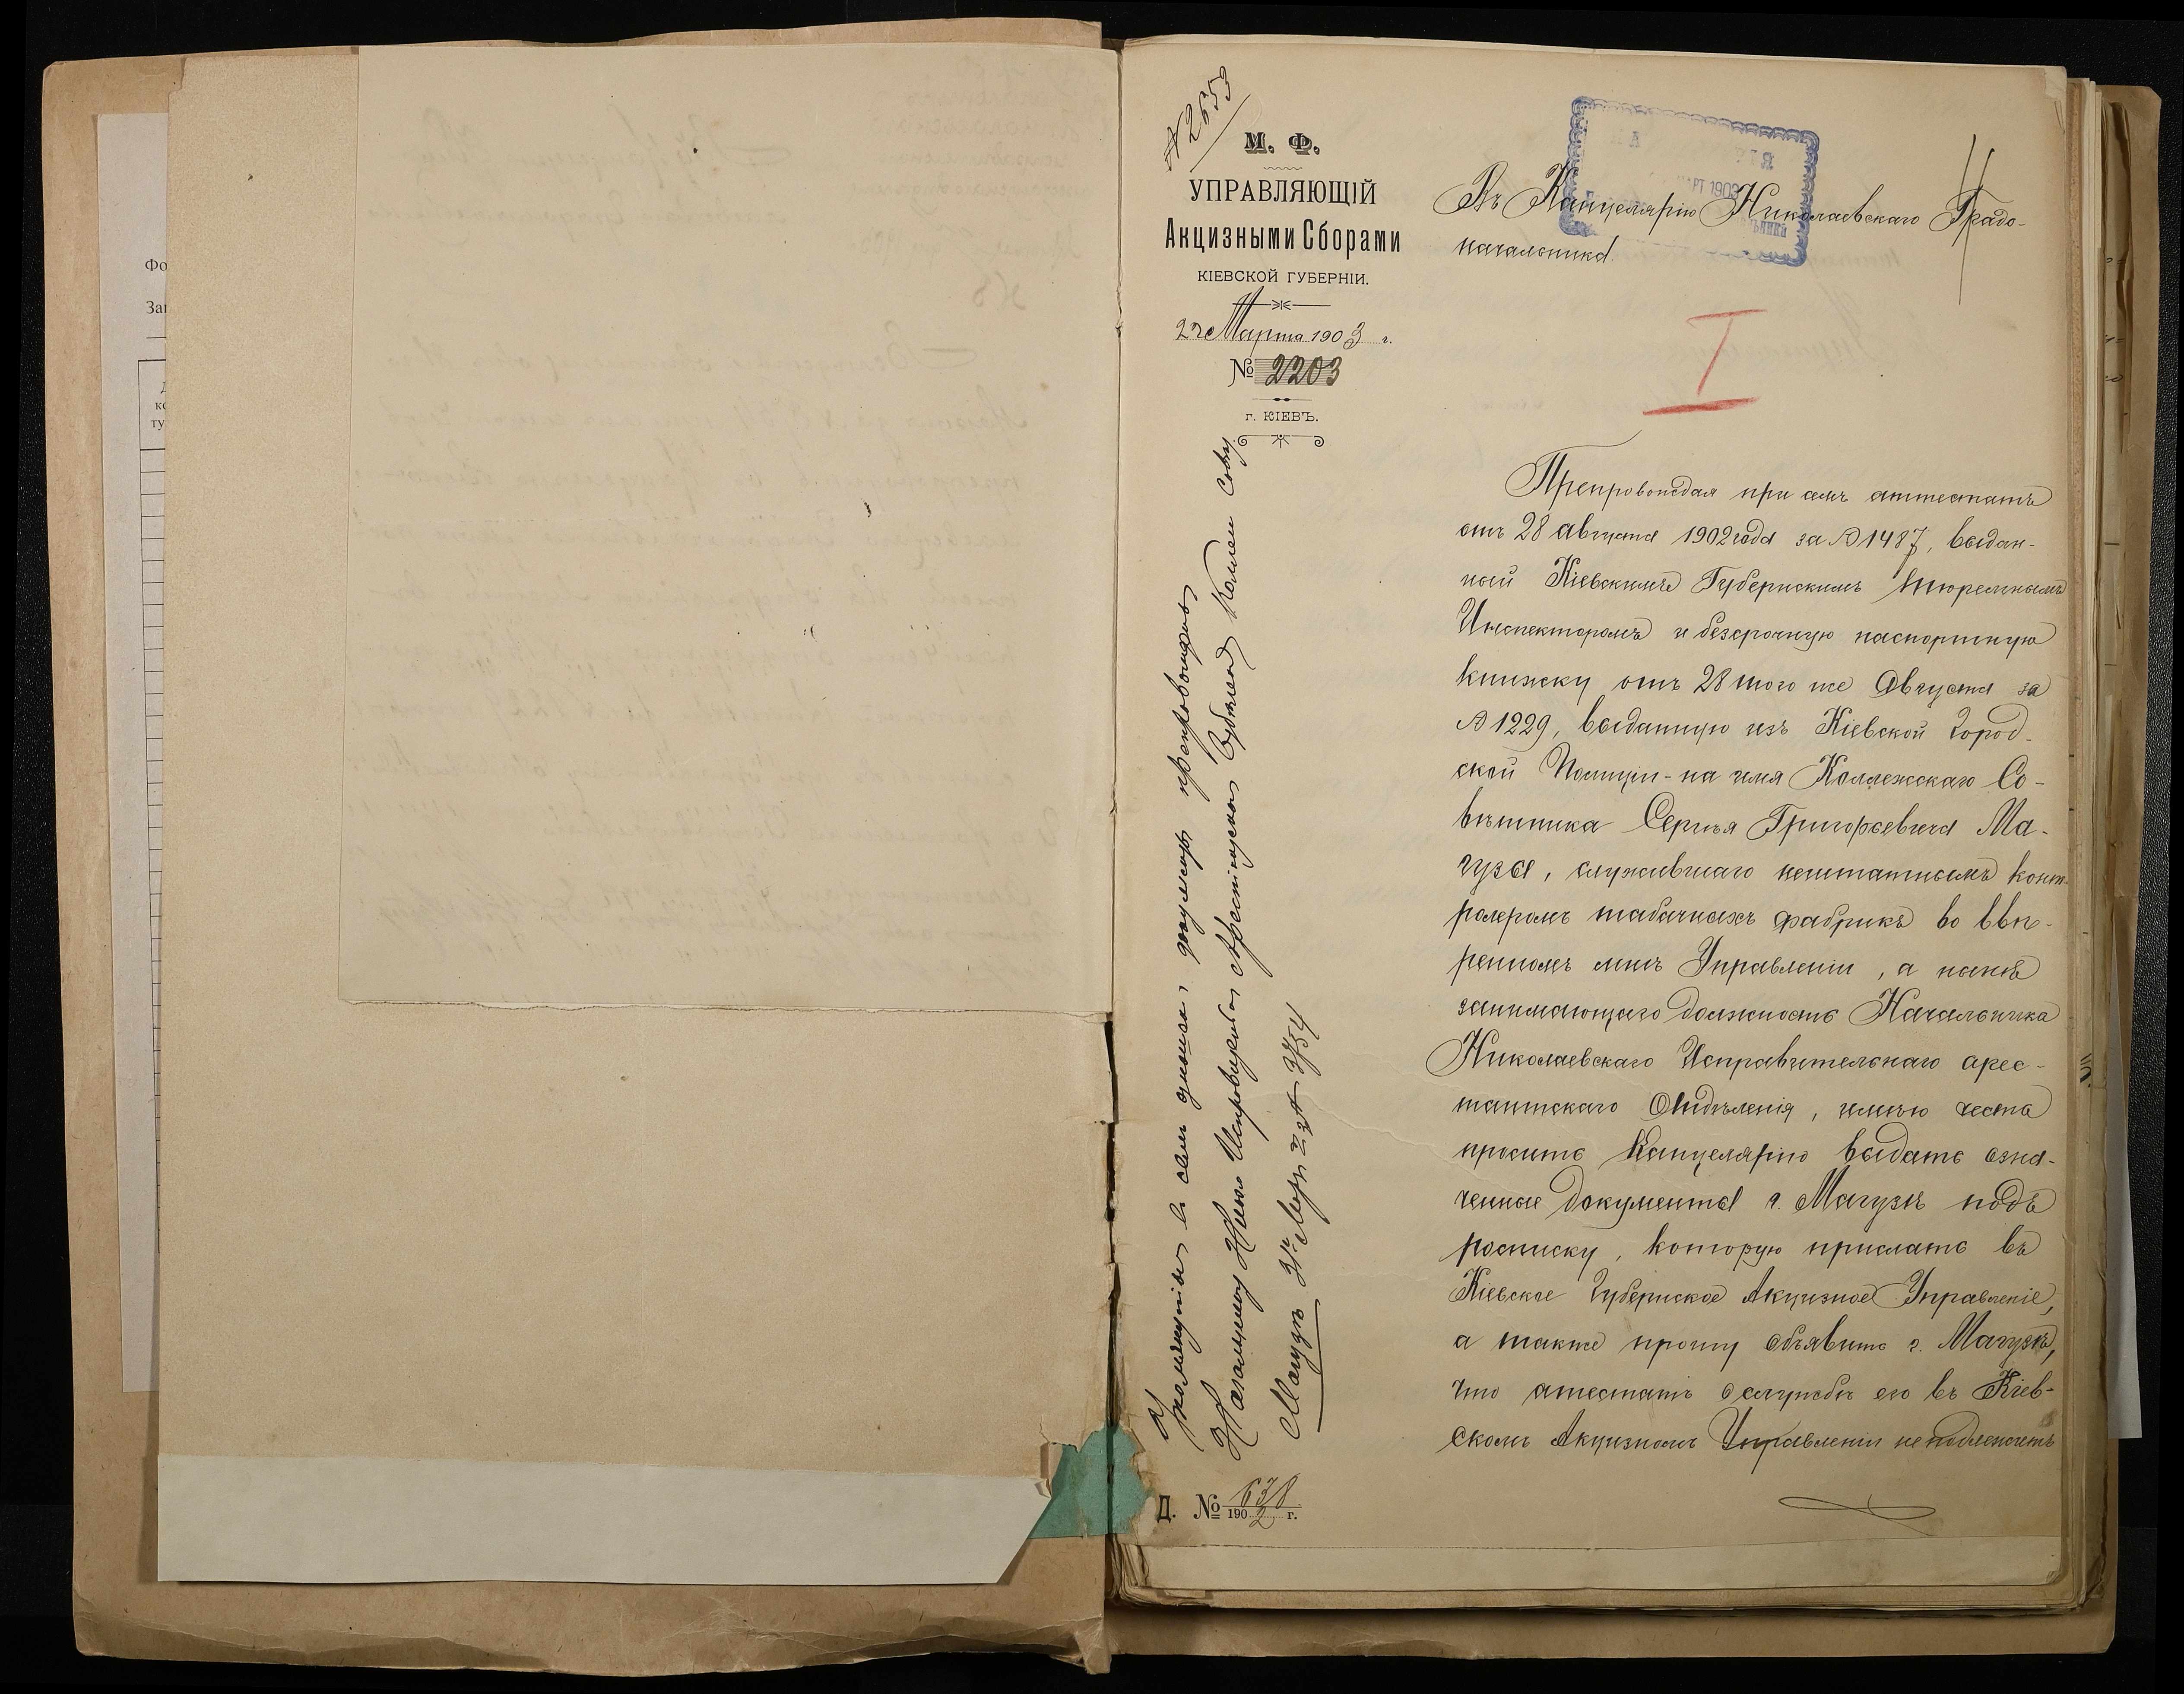 Фо
За
№ 2653
М. Ф.
УПРАВЛЯЮЩІЙ
Акцизными Сборами
КІЕВСКОЙ ГУБЕРНІИ.
Марта 1903 г.
№ 2203
г. КІЕВЪ.
Въ Канцелярію Николаевскаго Градо-
начальника.
МАРТ 1903
I
Препровождая при семъ аттестатъ
отъ 28 августа 1902 года за № 1487, выдан-
ный Кіевскимъ Губернскимъ Тюремнымъ
Инспекторомъ и безсрочную паспортную
книжку отъ 28 того же Августа за
№ 1229, выданную изъ Кіевской Город-
ской Полиціи - на имя Коллежскаго Со-
вѣтника Сергѣя Григорьевича Ма-
гузы, служившаго нештатнымъ конт-
ролеромъ табачныхъ фабрикъ во ввѣ-
ренномъ мнѣ Управленіи, а нынѣ
занимающаго должность Начальника
Николаевскаго Исправительнаго арес-
тантскаго Отдѣленія, имѣю честь
просить Канцелярію выдать озна-
ченные документы г. Магузѣ подъ
росписку, которую прислать въ
Кіевское Губернское Акцизное Управленіе,
а также прошу объявить г. Магузѣ,
что атестатъ о службѣ его въ Кіев-
скомъ Акцизномъ Управленіи не подлежитъ
документы препровождены
Начальнику Ник. Исправит. Арестантскаго Отдѣленія Коллеж. Совѣт.
Магузѣ Март
Д. № 638
1902 г.